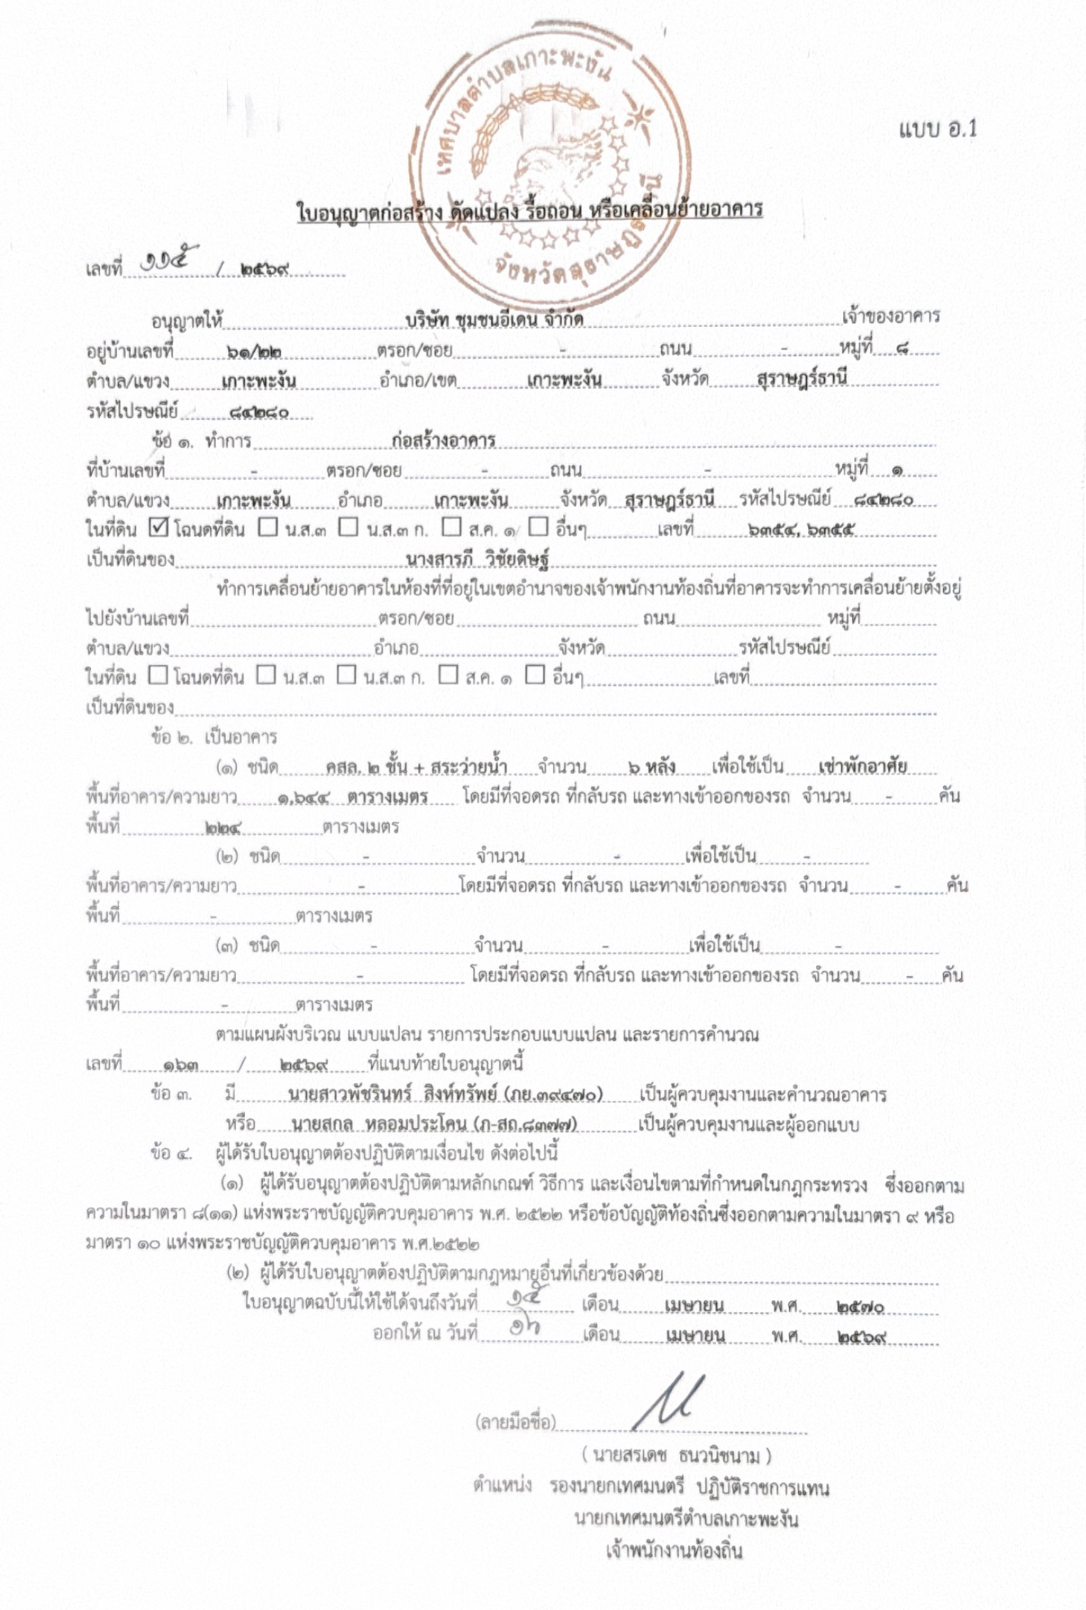 เทศบาลตำบลเกาะพะงัน
จังหวัดสุราษฎร์ธานี
แบบ อ.1
ใบอนุญาตก่อสร้าง ดัดแปลง รื้อถอน หรือเคลื่อนย้ายอาคาร
เลขที่ ๑๑๕ / ๒๕๖๙
อนุญาตให้ บริษัท ชุมชนอีเดน จำกัด เจ้าของอาคาร
อยู่บ้านเลขที่ ๖๑/๒๒ ตรอก/ซอย - ถนน - หมู่ที่ ๘
ตำบล/แขวง เกาะพะงัน อำเภอ/เขต เกาะพะงัน จังหวัด สุราษฎร์ธานี
รหัสไปรษณีย์ ๘๔๒๘๐
ข้อ ๑. ทำการ ก่อสร้างอาคาร
ที่บ้านเลขที่ - ตรอก/ซอย - ถนน - หมู่ที่ ๑
ตำบล/แขวง เกาะพะงัน อำเภอ เกาะพะงัน จังหวัด สุราษฎร์ธานี รหัสไปรษณีย์ ๘๔๒๘๐
ในที่ดิน ☑ โฉนดที่ดิน ☐ น.ส.๓ ☐ น.ส.๓ ก. ☐ ส.ค. ๑ ☐ อื่นๆ เลขที่ ๖๓๕๔, ๖๓๕๕
เป็นที่ดินของ นางสารภี วิชัยดิษฐ์
ทำการเคลื่อนย้ายอาคารในท้องที่ที่อยู่ในเขตอำนาจของเจ้าพนักงานท้องถิ่นที่อาคารจะทำการเคลื่อนย้ายตั้งอยู่
ไปยังบ้านเลขที่ ตรอก/ซอย ถนน หมู่ที่
ตำบล/แขวง อำเภอ จังหวัด รหัสไปรษณีย์
ในที่ดิน ☐ โฉนดที่ดิน ☐ น.ส.๓ ☐ น.ส.๓ ก. ☐ ส.ค. ๑ ☐ อื่นๆ เลขที่
เป็นที่ดินของ
ข้อ ๒. เป็นอาคาร
(๑) ชนิด คสล. ๒ ชั้น + สระว่ายน้ำ จำนวน ๖ หลัง เพื่อใช้เป็น เช่าพักอาศัย
พื้นที่อาคาร/ความยาว ๑,๖๔๔ ตารางเมตร โดยมีที่จอดรถ ที่กลับรถ และทางเข้าออกของรถ จำนวน - คัน
พื้นที่ ๒๒๔ ตารางเมตร
(๒) ชนิด - จำนวน - เพื่อใช้เป็น -
พื้นที่อาคาร/ความยาว - โดยมีที่จอดรถ ที่กลับรถ และทางเข้าออกของรถ จำนวน - คัน
พื้นที่ - ตารางเมตร
(๓) ชนิด - จำนวน - เพื่อใช้เป็น -
พื้นที่อาคาร/ความยาว - โดยมีที่จอดรถ ที่กลับรถ และทางเข้าออกของรถ จำนวน - คัน
พื้นที่ - ตารางเมตร
ตามแผนผังบริเวณ แบบแปลน รายการประกอบแบบแปลน และรายการคำนวณ
เลขที่ ๑๖๓ / ๒๕๖๙ ที่แนบท้ายใบอนุญาตนี้
ข้อ ๓. มี นายสาวพัชรินทร์ สิงห์ทรัพย์ (ภย.๓๙๔๗๐) เป็นผู้ควบคุมงานและคำนวณอาคาร
หรือ นายสกล หลอมประโคน (ภ-สถ.๘๓๗๗) เป็นผู้ควบคุมงานและผู้ออกแบบ
ข้อ ๔. ผู้ได้รับใบอนุญาตต้องปฏิบัติตามเงื่อนไข ดังต่อไปนี้
(๑) ผู้ได้รับอนุญาตต้องปฏิบัติตามหลักเกณฑ์ วิธีการ และเงื่อนไขตามที่กำหนดในกฎกระทรวง ซึ่งออกตาม
ความในมาตรา ๘(๑๑) แห่งพระราชบัญญัติควบคุมอาคาร พ.ศ. ๒๕๒๒ หรือข้อบัญญัติท้องถิ่นซึ่งออกตามความในมาตรา ๙ หรือ
มาตรา ๑๐ แห่งพระราชบัญญัติควบคุมอาคาร พ.ศ.๒๕๒๒
(๒) ผู้ได้รับใบอนุญาตต้องปฏิบัติตามกฎหมายอื่นที่เกี่ยวข้องด้วย
ใบอนุญาตฉบับนี้ให้ใช้ได้จนถึงวันที่ ๑๕ เดือน เมษายน พ.ศ. ๒๕๗๐
ออกให้ ณ วันที่ ๑๖ เดือน เมษายน พ.ศ. ๒๕๖๙
(ลายมือชื่อ)
( นายสรเดช ธนวนิชนาม )
ตำแหน่ง รองนายกเทศมนตรี ปฏิบัติราชการแทน
นายกเทศมนตรีตำบลเกาะพะงัน
เจ้าพนักงานท้องถิ่น